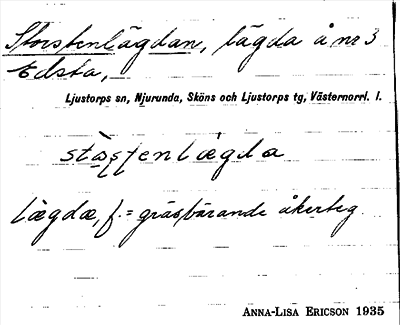 Storstenlägdan, lägda å nr 3
Edsta,
Ljustorps sn, Njurunda, Sköns och Ljustorps tg, Västernorrl. l.
lægdæ, f. = gräsbärande åkerteg
ANNA-LISA ERICSON 1935